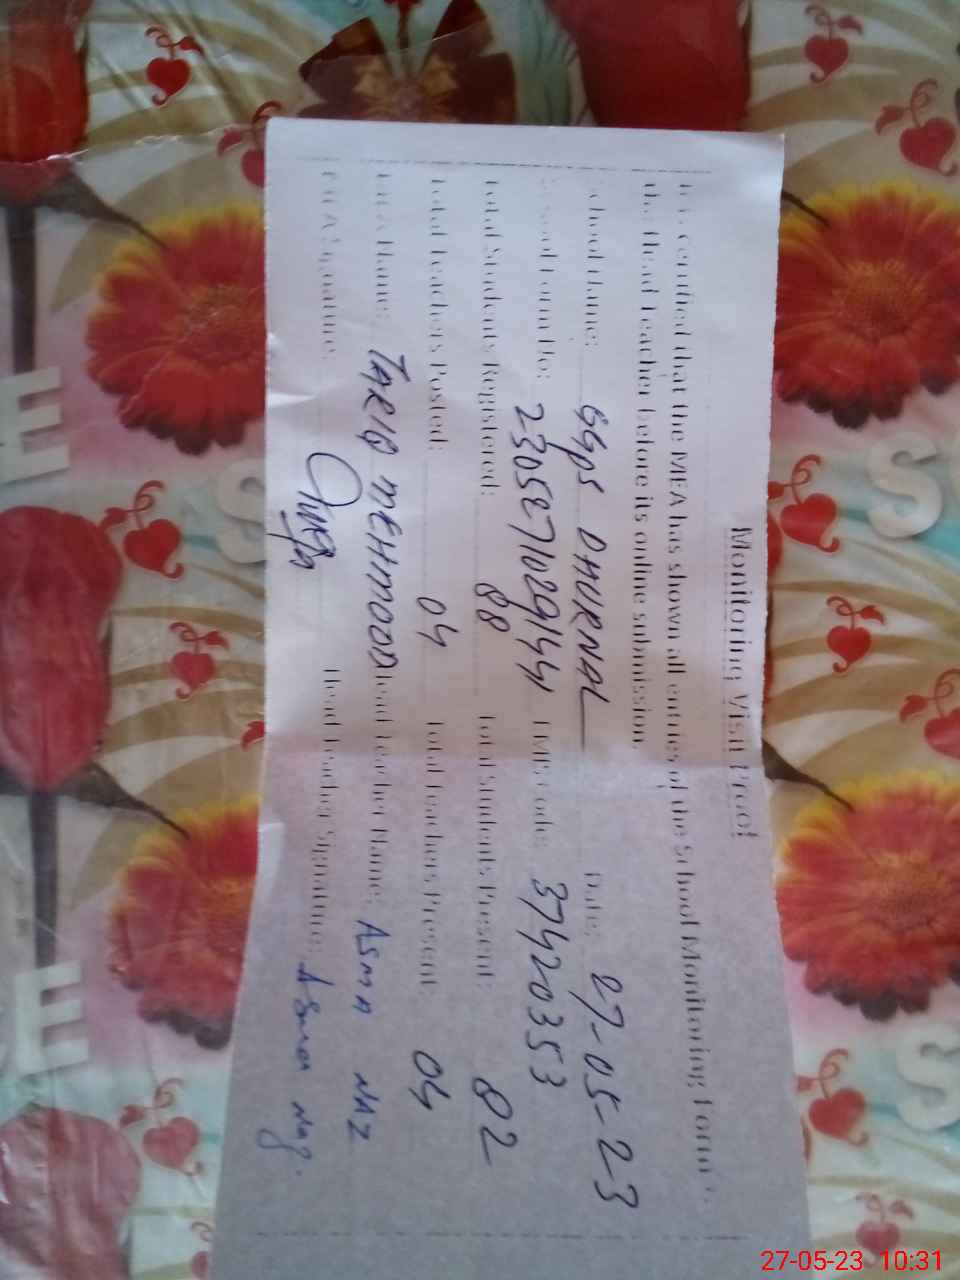 Monitoring Visit Proof
It is certified that the MEA has shown all entries of the School Monitoring Form to
the Head Teacher before its online submission.
School Name: GGPS DHURNAL Date: 27-05-23
Form No: 2305871029144 EMIS Code: 37420353
Total Students Registered: 88 Total Students Present: 82
Total Teachers Posted: 04 Total Teachers Present: 04
MEA's Name: TARIQ MEHMOOD Head Teacher Name: ASMA NAZ
MEA Signature: Head Teacher Signature: Asma Naz.
E
S
E
27-05-23 10:31